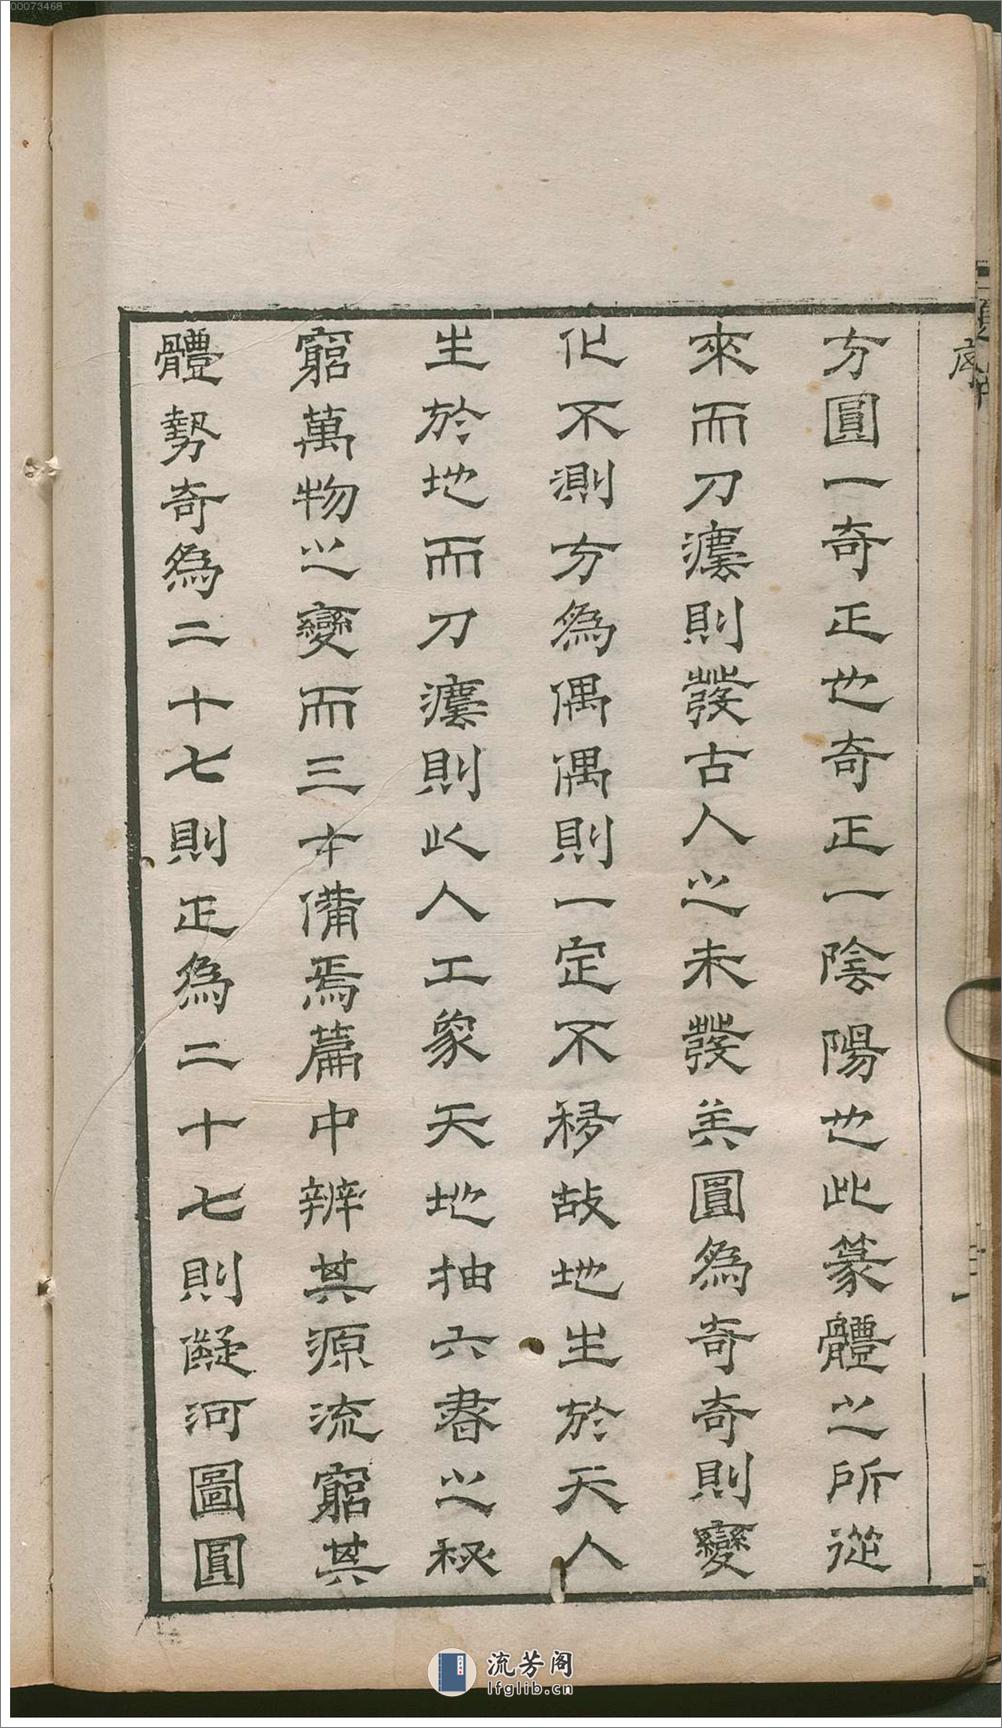 方圓一奇正也奇正一陰陽也此篆體之所從
來而刀瘻則發古人之未發美圓為奇奇則變
化不測方為偶偶則一定不移故地生於天人
生於地而刀瘻則此人工象天地抽六書之秘
窮萬物之變而三才備焉篇中辨其源流窮其
體勢奇為二十七則正為二十七則擬河圖圓
序
00073468
流芳阁
lfglib.cn